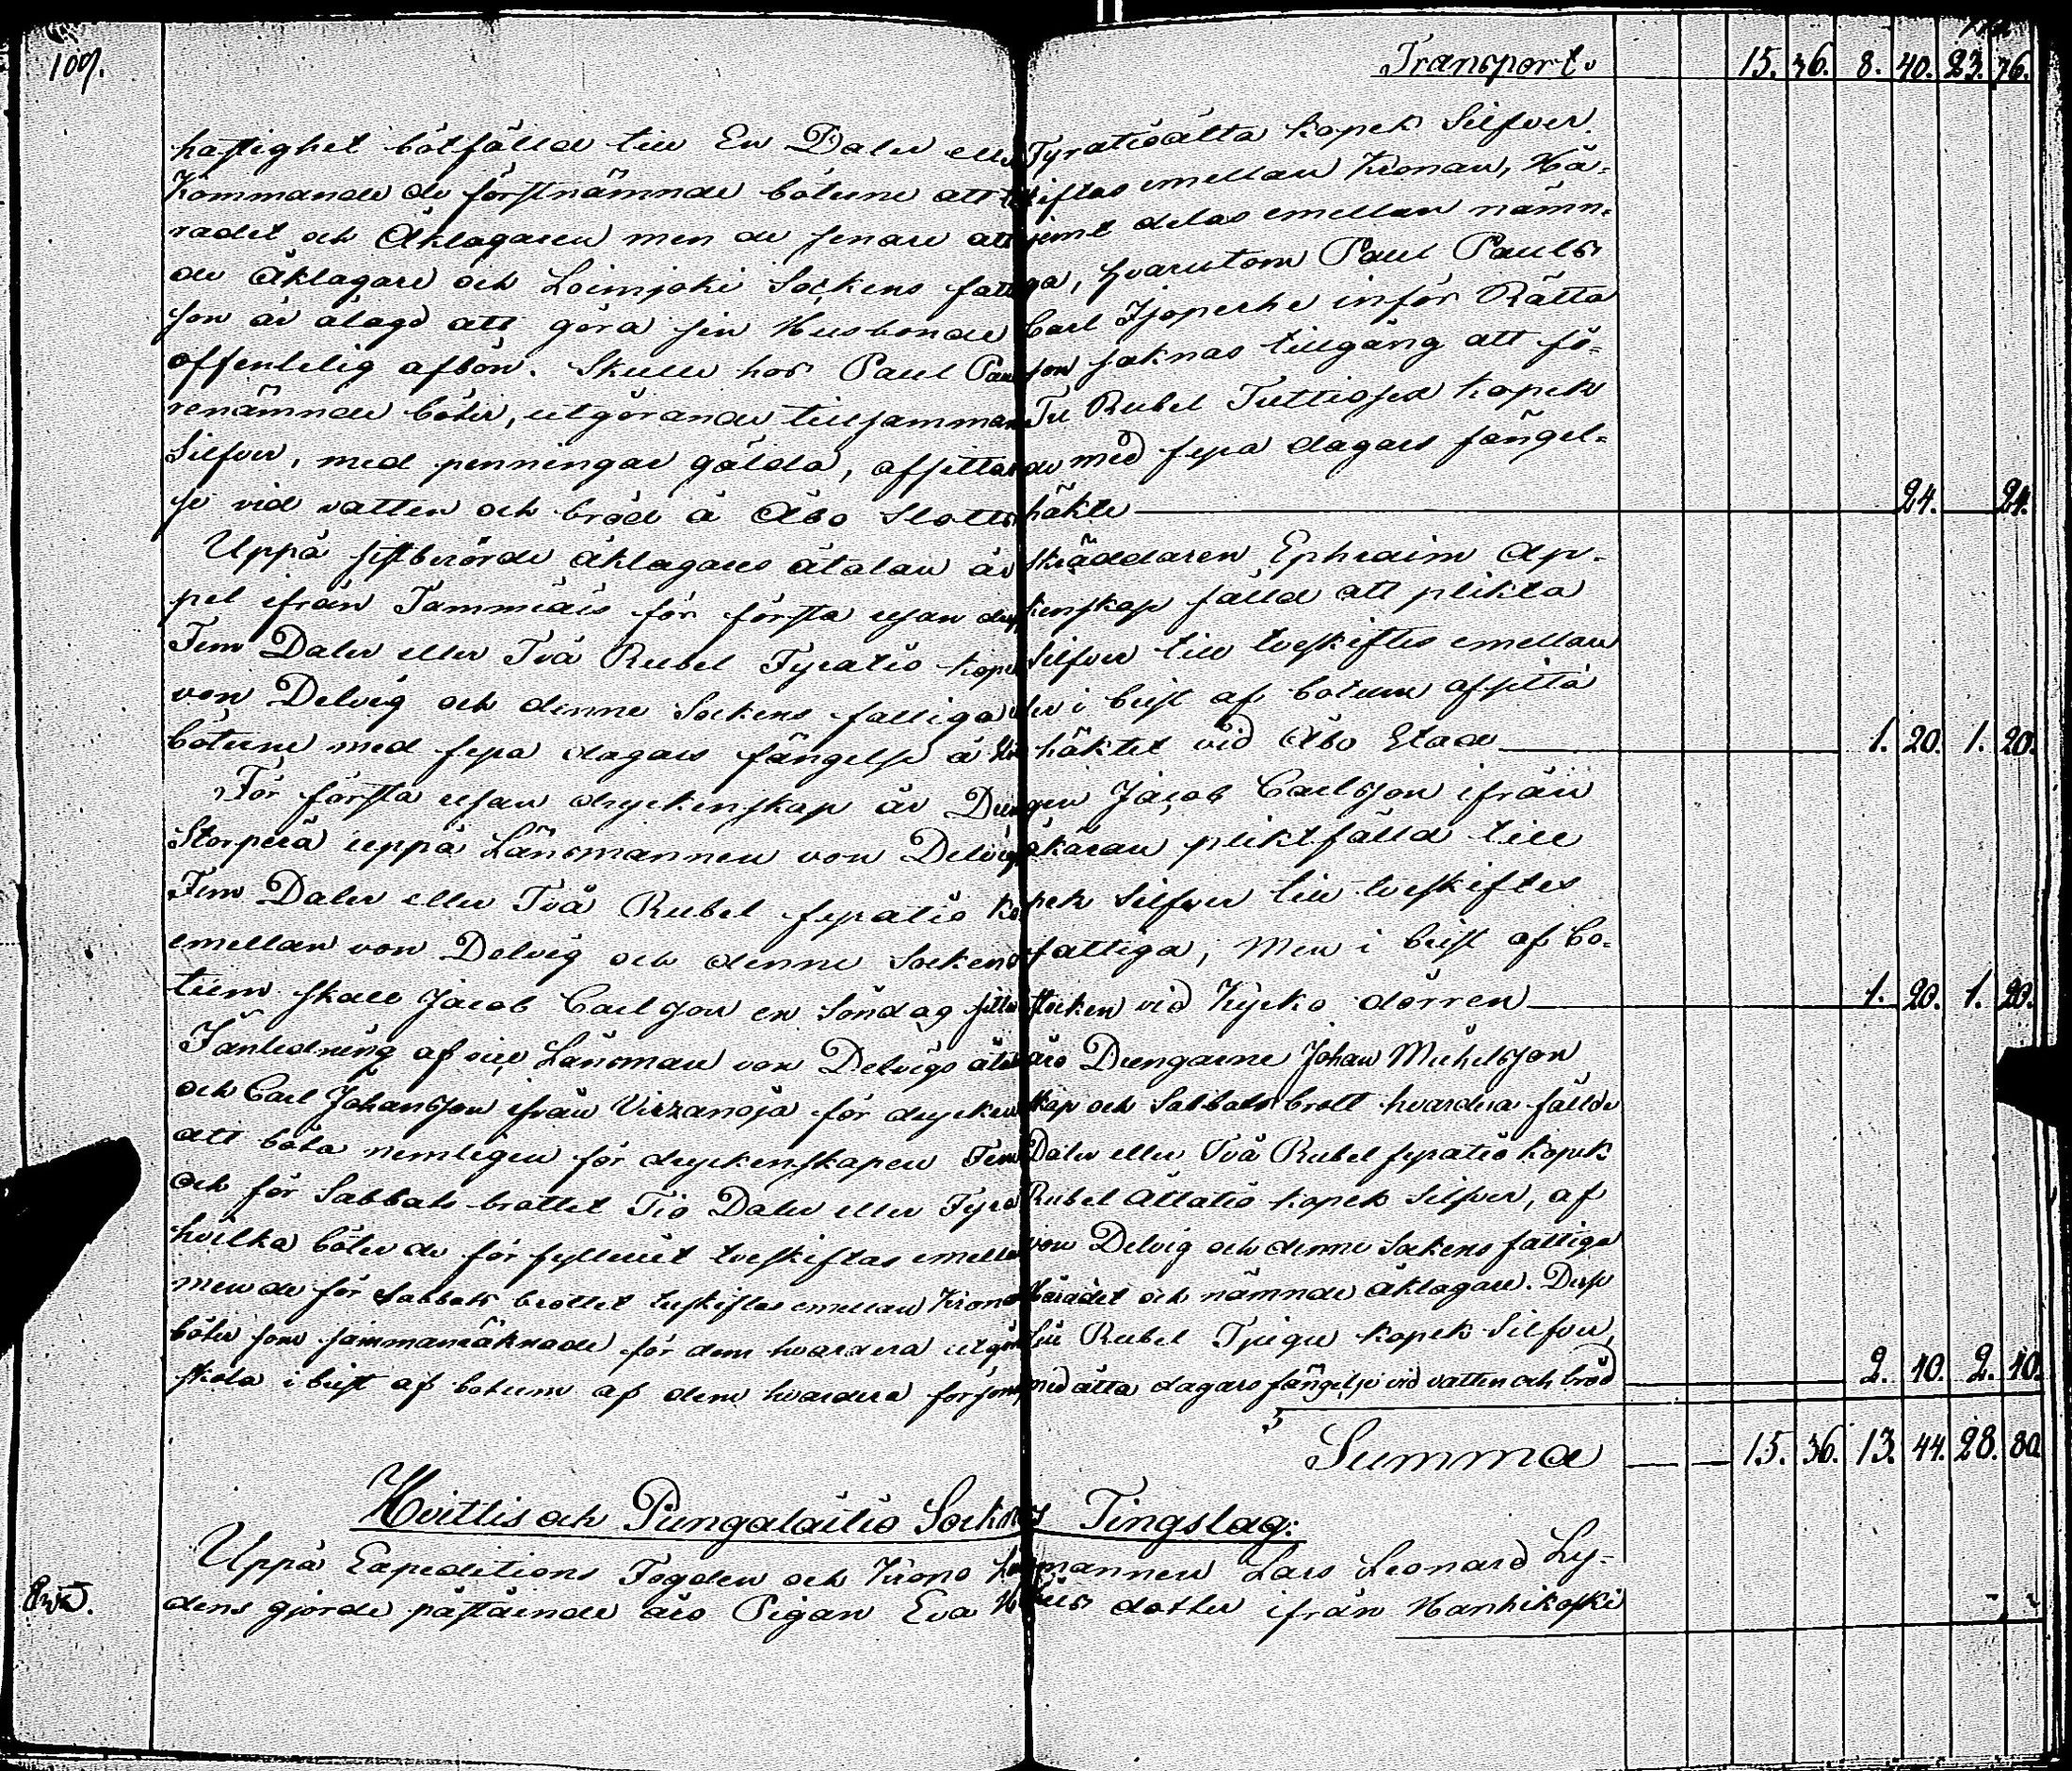 109.
Transport. 15. 36. 8. 40. 23. 76.
haftighet bötfälld till En Daler eller Fyratioåtta kopek Silfver.
Kommande de förstnämnde böterne att treskiftas emellan Kronan, Hä-
radet och Åklagaren men de senare att jemt delas emellan nämn-
de Åklagare och Loimjoki Sockens fattiga, hvarutom Paul Pauls
son är ålagd att göra sin Husbonde Carl Isoperhe inför Rätta
offentelig afbön. Skulle hos Paul Paulsson saknas tillgång att fö-
renämnde böter, utgörande tillsamman Tu Rubel Tuttiosex kopek
Silfver, med penningar gälda, afsittar de med fyra dagars fängel-
se vid vatten och bröd å Åbo Slotts häkte 24. 24.
Uppå sistberörde åklagares åtalan är Skräddaren Ephraim Ap-
pel ifrån Tammiais för första resan dryckenskap fälld att plikta
Fem Daler eller Två Rubel Fyratio kopek Silfver till tveskiftes emellan
von Delvig och denne Sockens fattiga eller i brist af botum afsitta
böterne med fyra dagars fängelse å häktet vid Åbo Stad 1. 20. 1. 20.
För första resan dryckenskap är Drengen Jacob Carlsson ifrån
Storperä uppå Länsmannen von Delvigs åkäran pliktfälld till
Fem Daler eller Två Rubel fyratio kopek Silfver till tveskiftes
emellan von Delvig och denne Sockens fattiga; Men i brist af bo-
tum skall Jacob Carlsson en Söndag sitta i stocken vid Kyrko dörren 1. 20. 1. 20.
I anledning af Länsman von Delvigs åtal äro Drengarne Johan Michelsson
och Carl Johansson ifrån Virzanoja för dryckenskap och Sabbats brott hvardera fällde
att böta nemligen för dryckenskapen Fem Daler eller Två Rubel fyratio kopek
och för Sabbats brottet Tio Daler eller Fyra Rubel Åttatio kopek Silfver, af
hvilka böter de för fylleriet tveskiftas emellan von Delvig och denne Sockens fattiga
men de för Sabbats brottet treskiftas emellan Kronan Häradet och nämnde åklagare. Desse
böter som sammanräknade för dem hvardera utgöra Sju Rubel Tjugu kopek Silfver,
skola i brist af botum af dem hvardera försonas med åtta dagars fängelse vid vatten och bröd 2. 40. 2. 40.
Summa 15. 36. 13. 44. 28. 80.
Hvittis och Pungalaitio Socknars Tingslag:
Uppå Expeditions Fogden och Krono Länsmannen Lars Leonard Ly-
dens gjorde påstående äro Pigan Eva dotter ifrån Hanhikoski